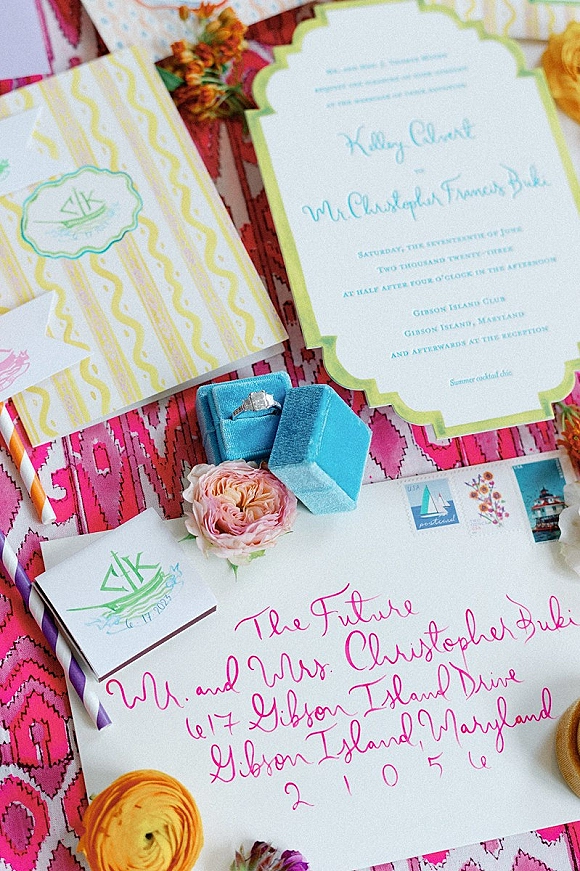 C/K
MR. AND MRS. J.
REQUEST THE PLEASURE OF YOUR COMPANY
AT THE MARRIAGE OF THEIR DAUGHTER
Kelley Calvert
TO
Mr Christopher Francis Buki
SATURDAY, THE SEVENTEENTH OF JUNE
TWO THOUSAND TWENTY-THREE
AT HALF AFTER FOUR O'CLOCK IN THE AFTERNOON
GIBSON ISLAND CLUB
GIBSON ISLAND, MARYLAND
AND AFTERWARDS AT THE RECEPTION
Summer cocktail chic
USA
postcard
C/K
6 17 2023
The Future
Mr. and Mrs. Christopher Buki
617 Gibson Island Drive
Gibson Island, Maryland
2 1 0 5 6